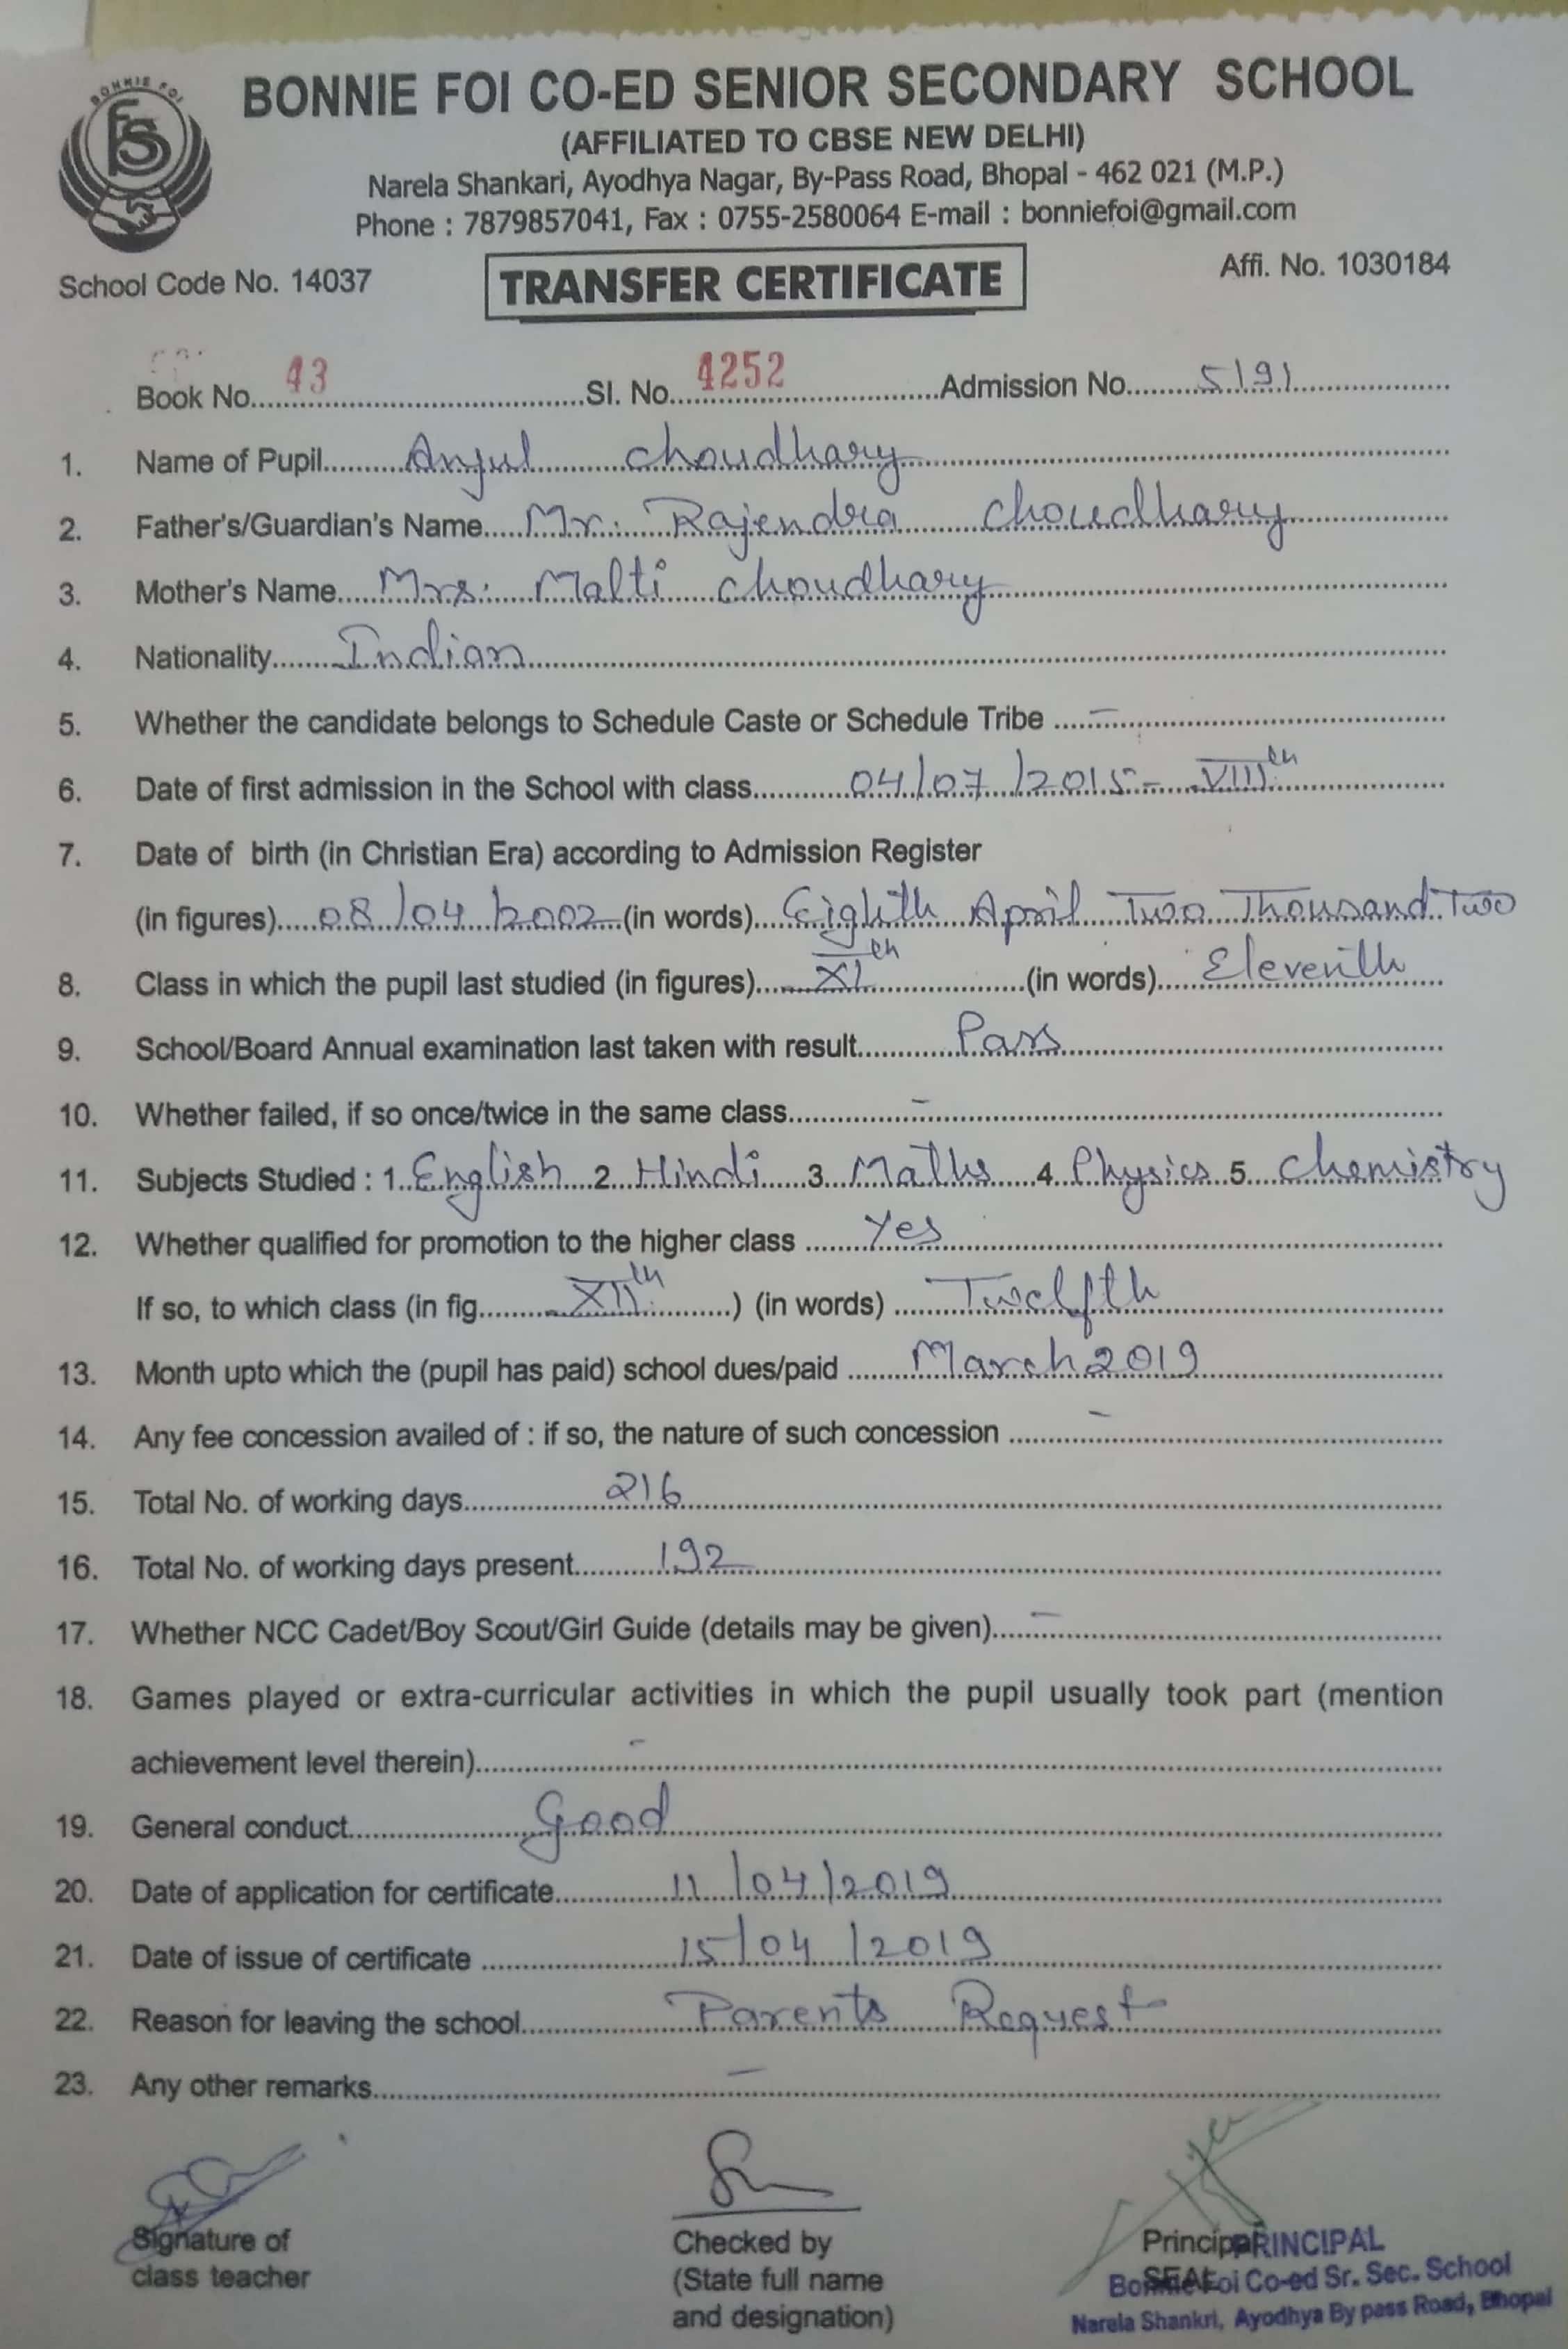 BONNIE FOI
FS
BONNIE FOI CO-ED SENIOR SECONDARY SCHOOL
(AFFILIATED TO CBSE NEW DELHI)
Narela Shankari, Ayodhya Nagar, By-Pass Road, Bhopal - 462 021 (M.P.)
Phone : 7879857041, Fax : 0755-2580064 E-mail : bonniefoi@gmail.com
School Code No. 14037 TRANSFER CERTIFICATE Affi. No. 1030184
Book No. 43 Sl. No. 4252 Admission No. 5191
1. Name of Pupil Anjul Choudhary
2. Father's/Guardian's Name Mr. Rajendra Choudhary
3. Mother's Name Mrs. Malti Choudhary
4. Nationality Indian
5. Whether the candidate belongs to Schedule Caste or Schedule Tribe –
6. Date of first admission in the School with class 04/07/2015 - VIIIth
7. Date of birth (in Christian Era) according to Admission Register
(in figures) 08/04/2002 (in words) Eighth April Two Thousand Two
8. Class in which the pupil last studied (in figures) XIth (in words) Eleventh
9. School/Board Annual examination last taken with result Pass
10. Whether failed, if so once/twice in the same class –
11. Subjects Studied : 1. English 2. Hindi 3. Maths 4. Physics 5. Chemistry
12. Whether qualified for promotion to the higher class Yes
If so, to which class (in fig. XIIth ) (in words) Twelfth
13. Month upto which the (pupil has paid) school dues/paid March 2019
14. Any fee concession availed of : if so, the nature of such concession –
15. Total No. of working days 216
16. Total No. of working days present 192
17. Whether NCC Cadet/Boy Scout/Girl Guide (details may be given) –
18. Games played or extra-curricular activities in which the pupil usually took part (mention
achievement level therein) –
19. General conduct Good
20. Date of application for certificate 11/04/2019
21. Date of issue of certificate 15/04/2019
22. Reason for leaving the school Parents Request
23. Any other remarks –
Signature of
class teacher
Checked by
(State full name
and designation)
Principal
SEAL
PRINCIPAL
Bonnie Foi Co-ed Sr. Sec. School
Narela Shankri, Ayodhya By pass Road, Bhopal